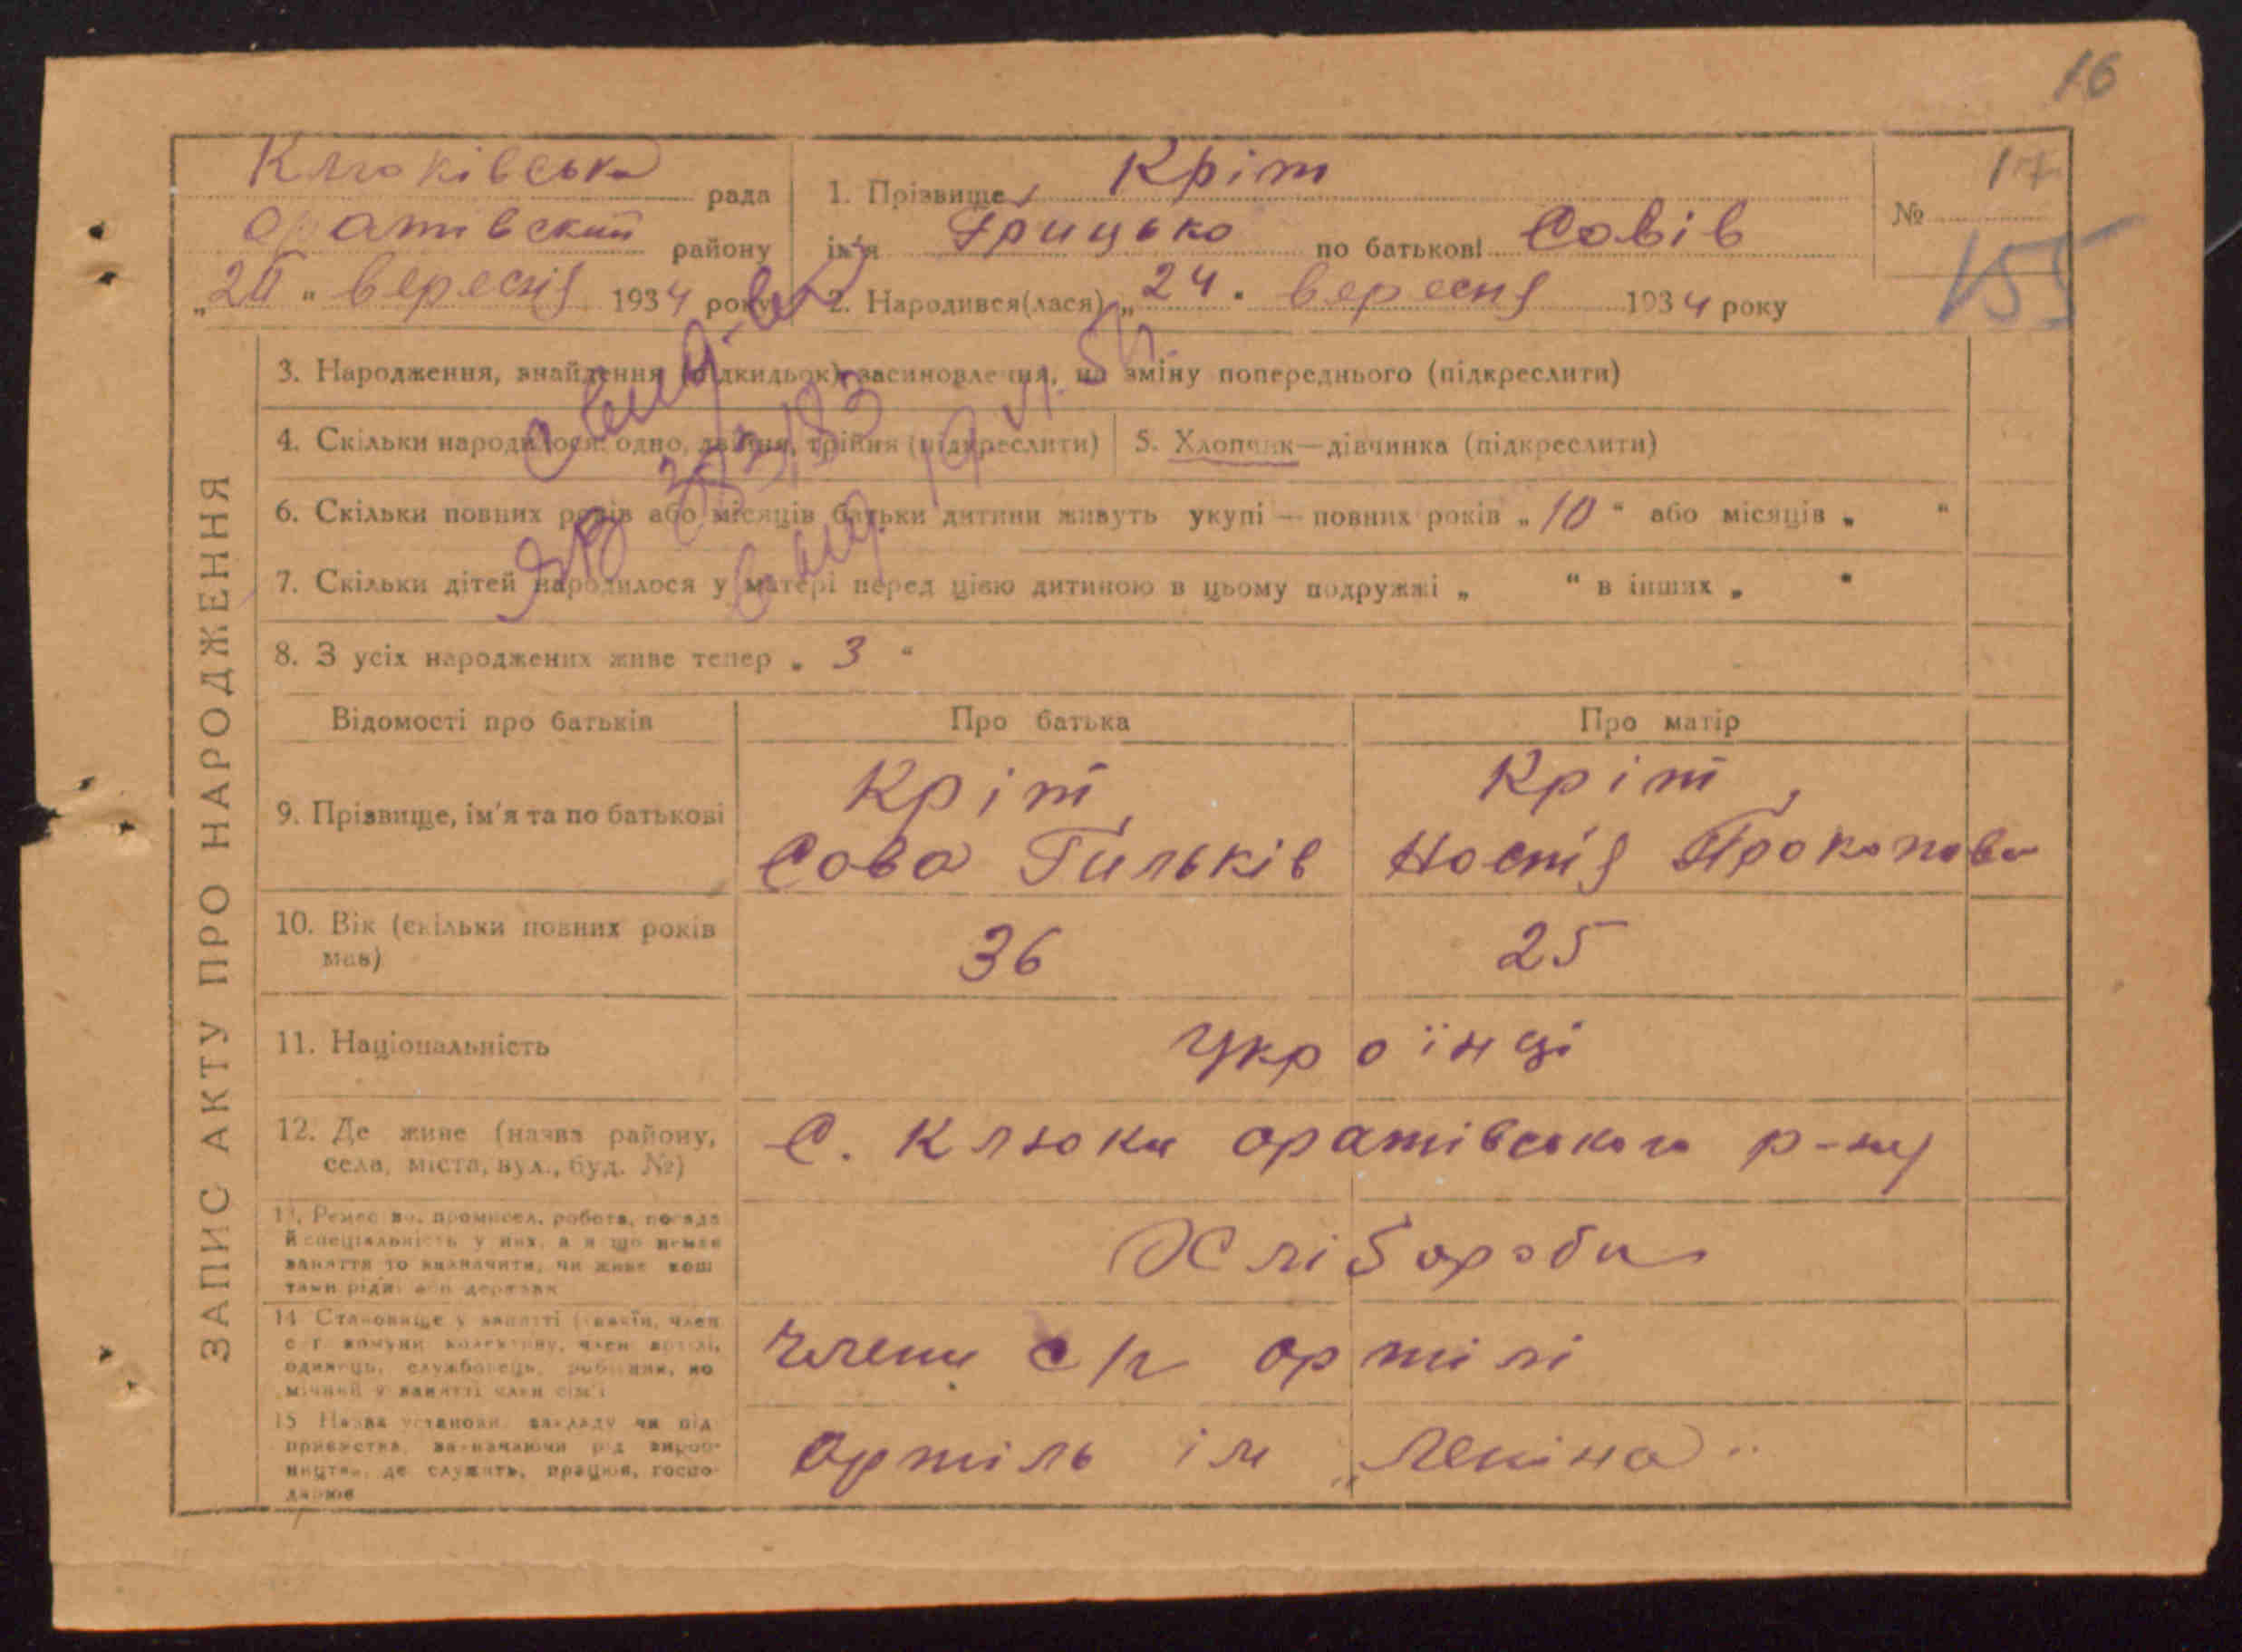 16
Клюківська рада
Оратівский району
"2" вересня 1934 року
1. Прізвище Кріт
ім'я Грицько по батькові Совів
2. Народився(лася) „24" вересня 1934 року
№ 17
155
ЗАПИС АКТУ ПРО НАРОДЖЕННЯ
3. Народження, знайдення (підкидьок), засиновлення, на зміну попереднього (підкреслити)
4. Скільки народилося: одно, двійня, трійня (підкреслити)
5. Хлопчик—дівчинка (підкреслити)
6. Скільки повних років або місяців батьки дитини живуть укупі — повних років „10" або місяців „ "
7. Скільки дітей народилося у матері перед цією дитиною в цьому подружжі „ " в інших „ "
8. З усіх народжених живе тепер „3"
Відомості про батьків Про батька Про матір
9. Прізвище, ім'я та по батькові
Кріт Кріт,
Сова Гильків Настія Прокопова
10. Вік (скільки повних років
має)
36 25
11. Національність
Українці
12. Де живе (назва району,
села, міста, вул., буд. №)
С. Клюки оратівського р-ну
13. Ремество, промисел, робота, посада
й спеціальність у них, а якщо немає
заняття то визначити, чи живе кош
тами рідні або держави
Хлібороби
14 Становище у занятті (хазяїн, член
с-г. комуни колективу, член артілі,
одинець, службовець, робітник, по
мічний у занятті член сім'ї
Члени с/г артілі
15 Назва установи закладу чи під
приємства, зазначаючи рід вироб-
ництва, де служить, працює, госпо-
дарює
Артіль ім „Леніна"